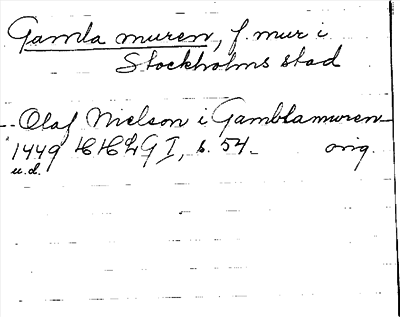 Gamla muren, f. mur i
Stockholms stad
Olaf Nielson i Gamblamuren
1449 HHLG I, s. 54. orig.
u.d.